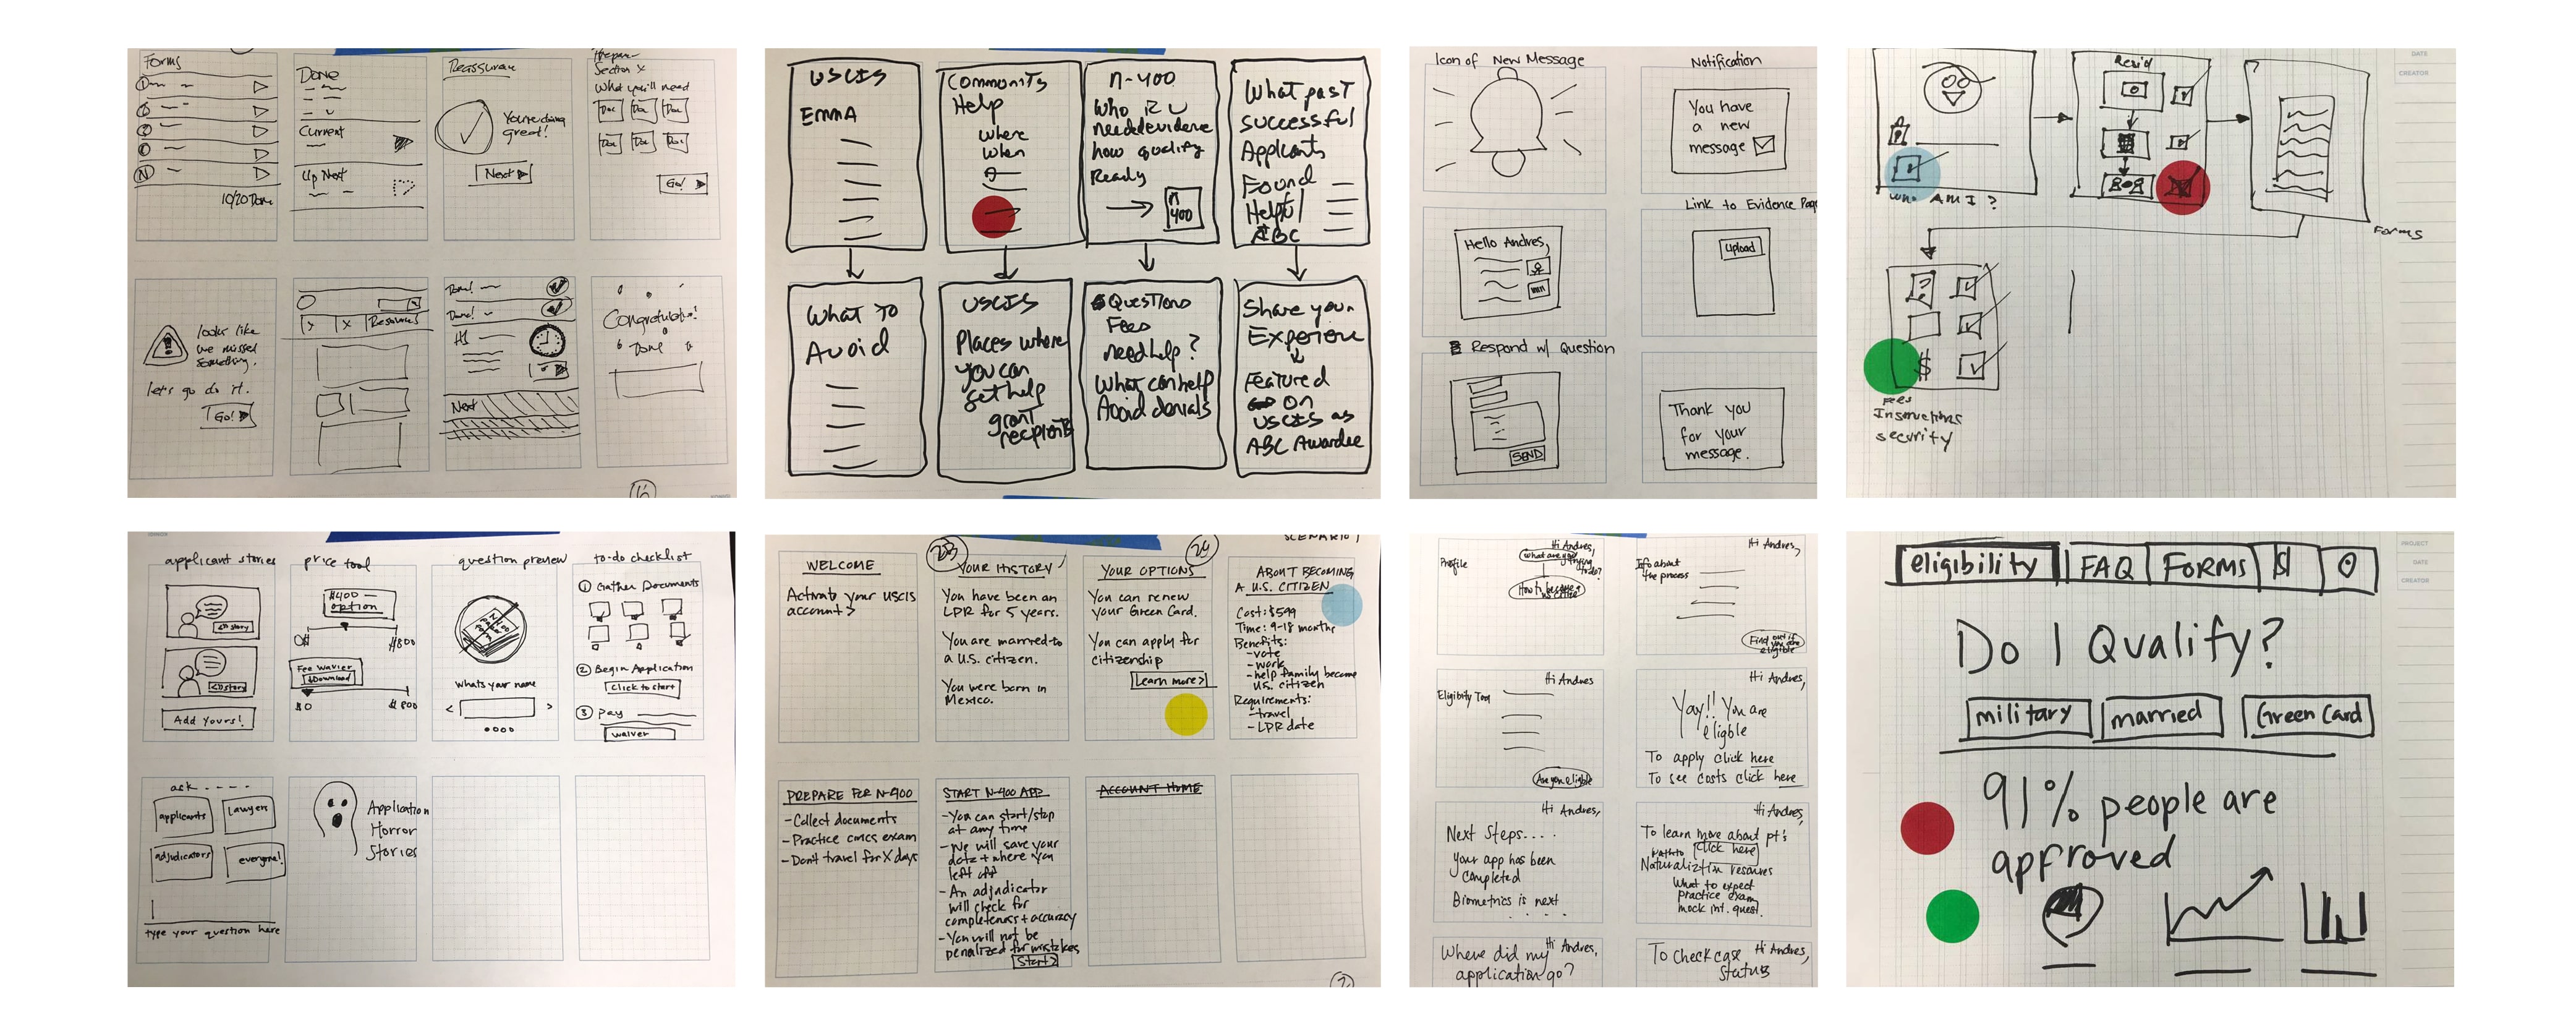 Forms
10/20 Done
Done
Current
Up Next
Reassurance
You're doing
great!
Next
Section X
What you'll need
Doc Doc Doc
Doc Doc Doc
Go!
looks like
we missed
something.
let's go do it.
Go!
Resources
Done!
Done!
Next
Congratulations!
Done
16
USCIS
EMMA
Community
Help
where
when
N-400
Who R U
needed evidence
how qualify
Ready
N
400
What past
successful
Applicants
Found
Helpful
ABC
What to
Avoid
USCIS
Places where
you can
get help
grant
recipients
Questions
Fees
need help?
What can help
Avoid denials
Share your
Experience
Featured
on
USCIS as
ABC Awardee
Icon of New Message
Notification
You have
a new
message
Hello Andres,
Link to Evidence Page
Upload
Respond w/ Question
SEND
Thank you
for your
message.
DATE
CREATOR
Who AM I?
Forms
$
Fees
Instructions
security
applicant stories
story
story
Add Yours!
price tool
$400 —
option
0$
$800
Fee waiver
Download
$0
$800
question preview
whats your name
< >
to-do checklist
1 Gather Documents
2 Begin Application
Click to start
3 Pay
waiver
ask - - - -
applicants
Lawyers
adjudicators
everyone!
type your question here
Application
Horror
Stories
SCENARIO 1
WELCOME
Activate your USCIS
account >
23
YOUR HISTORY
You have been an
LPR for 5 years.
You are married to
a U.S. citizen.
You were born in
Mexico.
24
YOUR OPTIONS
You can renew
your Green Card.
You can apply for
citizenship
Learn more >
ABOUT BECOMING
A U.S. CITIZEN
Cost: $595
Time: 9-18 months
Benefits:
- vote
- work
- help family become
U.S. citizen
Requirements:
- travel
- LPR date
PREPARE FOR N-400
- Collect documents
- Practice civics exam
- Don't travel for X days
START N-400 APP
- You can start/stop
at any time
- We will save your
data + where you
left off
- An adjudicator
will check for
completeness + accuracy
- You will not be
penalized for mistakes
Start >
ACCOUNT HOME
Profile
Hi Andres,
What are you
trying
to do?
Hi Andres,
Info about
the process
Find out if
you are
eligible
Eligibity Tool
Hi Andres
Are you eligible
Hi Andres,
Yay!! You are
eligble
To apply click here
To see costs click here
Hi Andres,
Next Steps....
your app has been
completed
Biometrics is next
. . . .
Hi Andres,
To learn more about pt's
click here
Naturaliztion resources
What to expect
practice exam
mock int. quest.
Hi Andres,
Where did my
application go?
Hi Andres,
To check case
status
PROJECT
DATE
CREATOR
eligibility FAQ FORMS
Do I Qualify?
military married Green Card
91% people are
approved